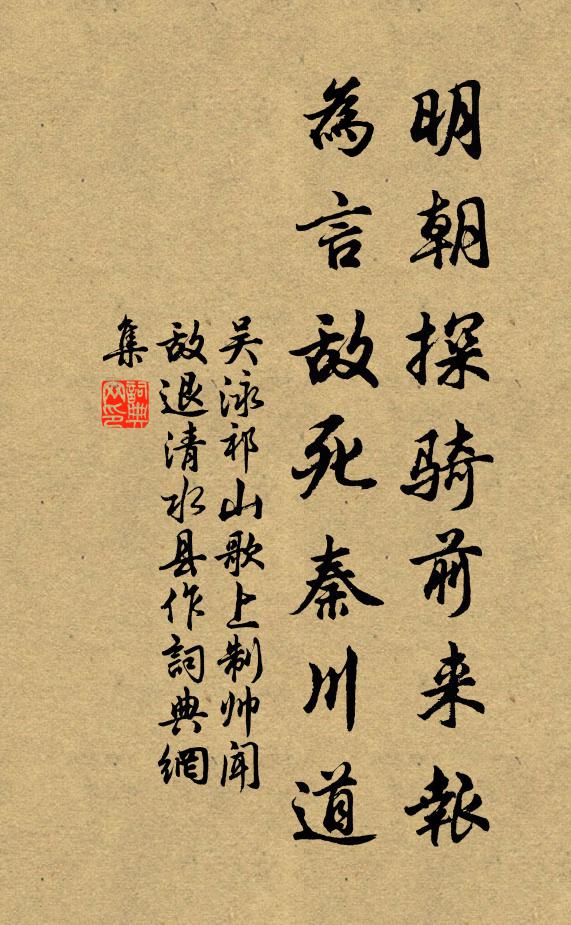 明朝探骑前来報
為言敌死秦川道
吴泳祁山歌上制帅闻
敌退清水县作詞典網
集
詞典
网印